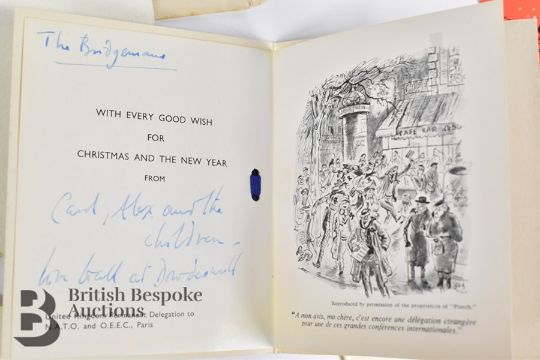 The Bridgemans
WITH EVERY GOOD WISH
FOR
CHRISTMAS AND THE NEW YEAR
FROM
Carol, Alex and the
children -
love to all at
United Kingdom Permanent Delegation to
N.A.T.O. and O.E.E.C., Paris
B
British Bespoke
Auctions
CAFE BAR
Reproduced by permission of the proprietors of "Punch."
"A mon avis, ma chère, c'est encore une délégation étrangère
pour une de ces grandes conférences internationales."